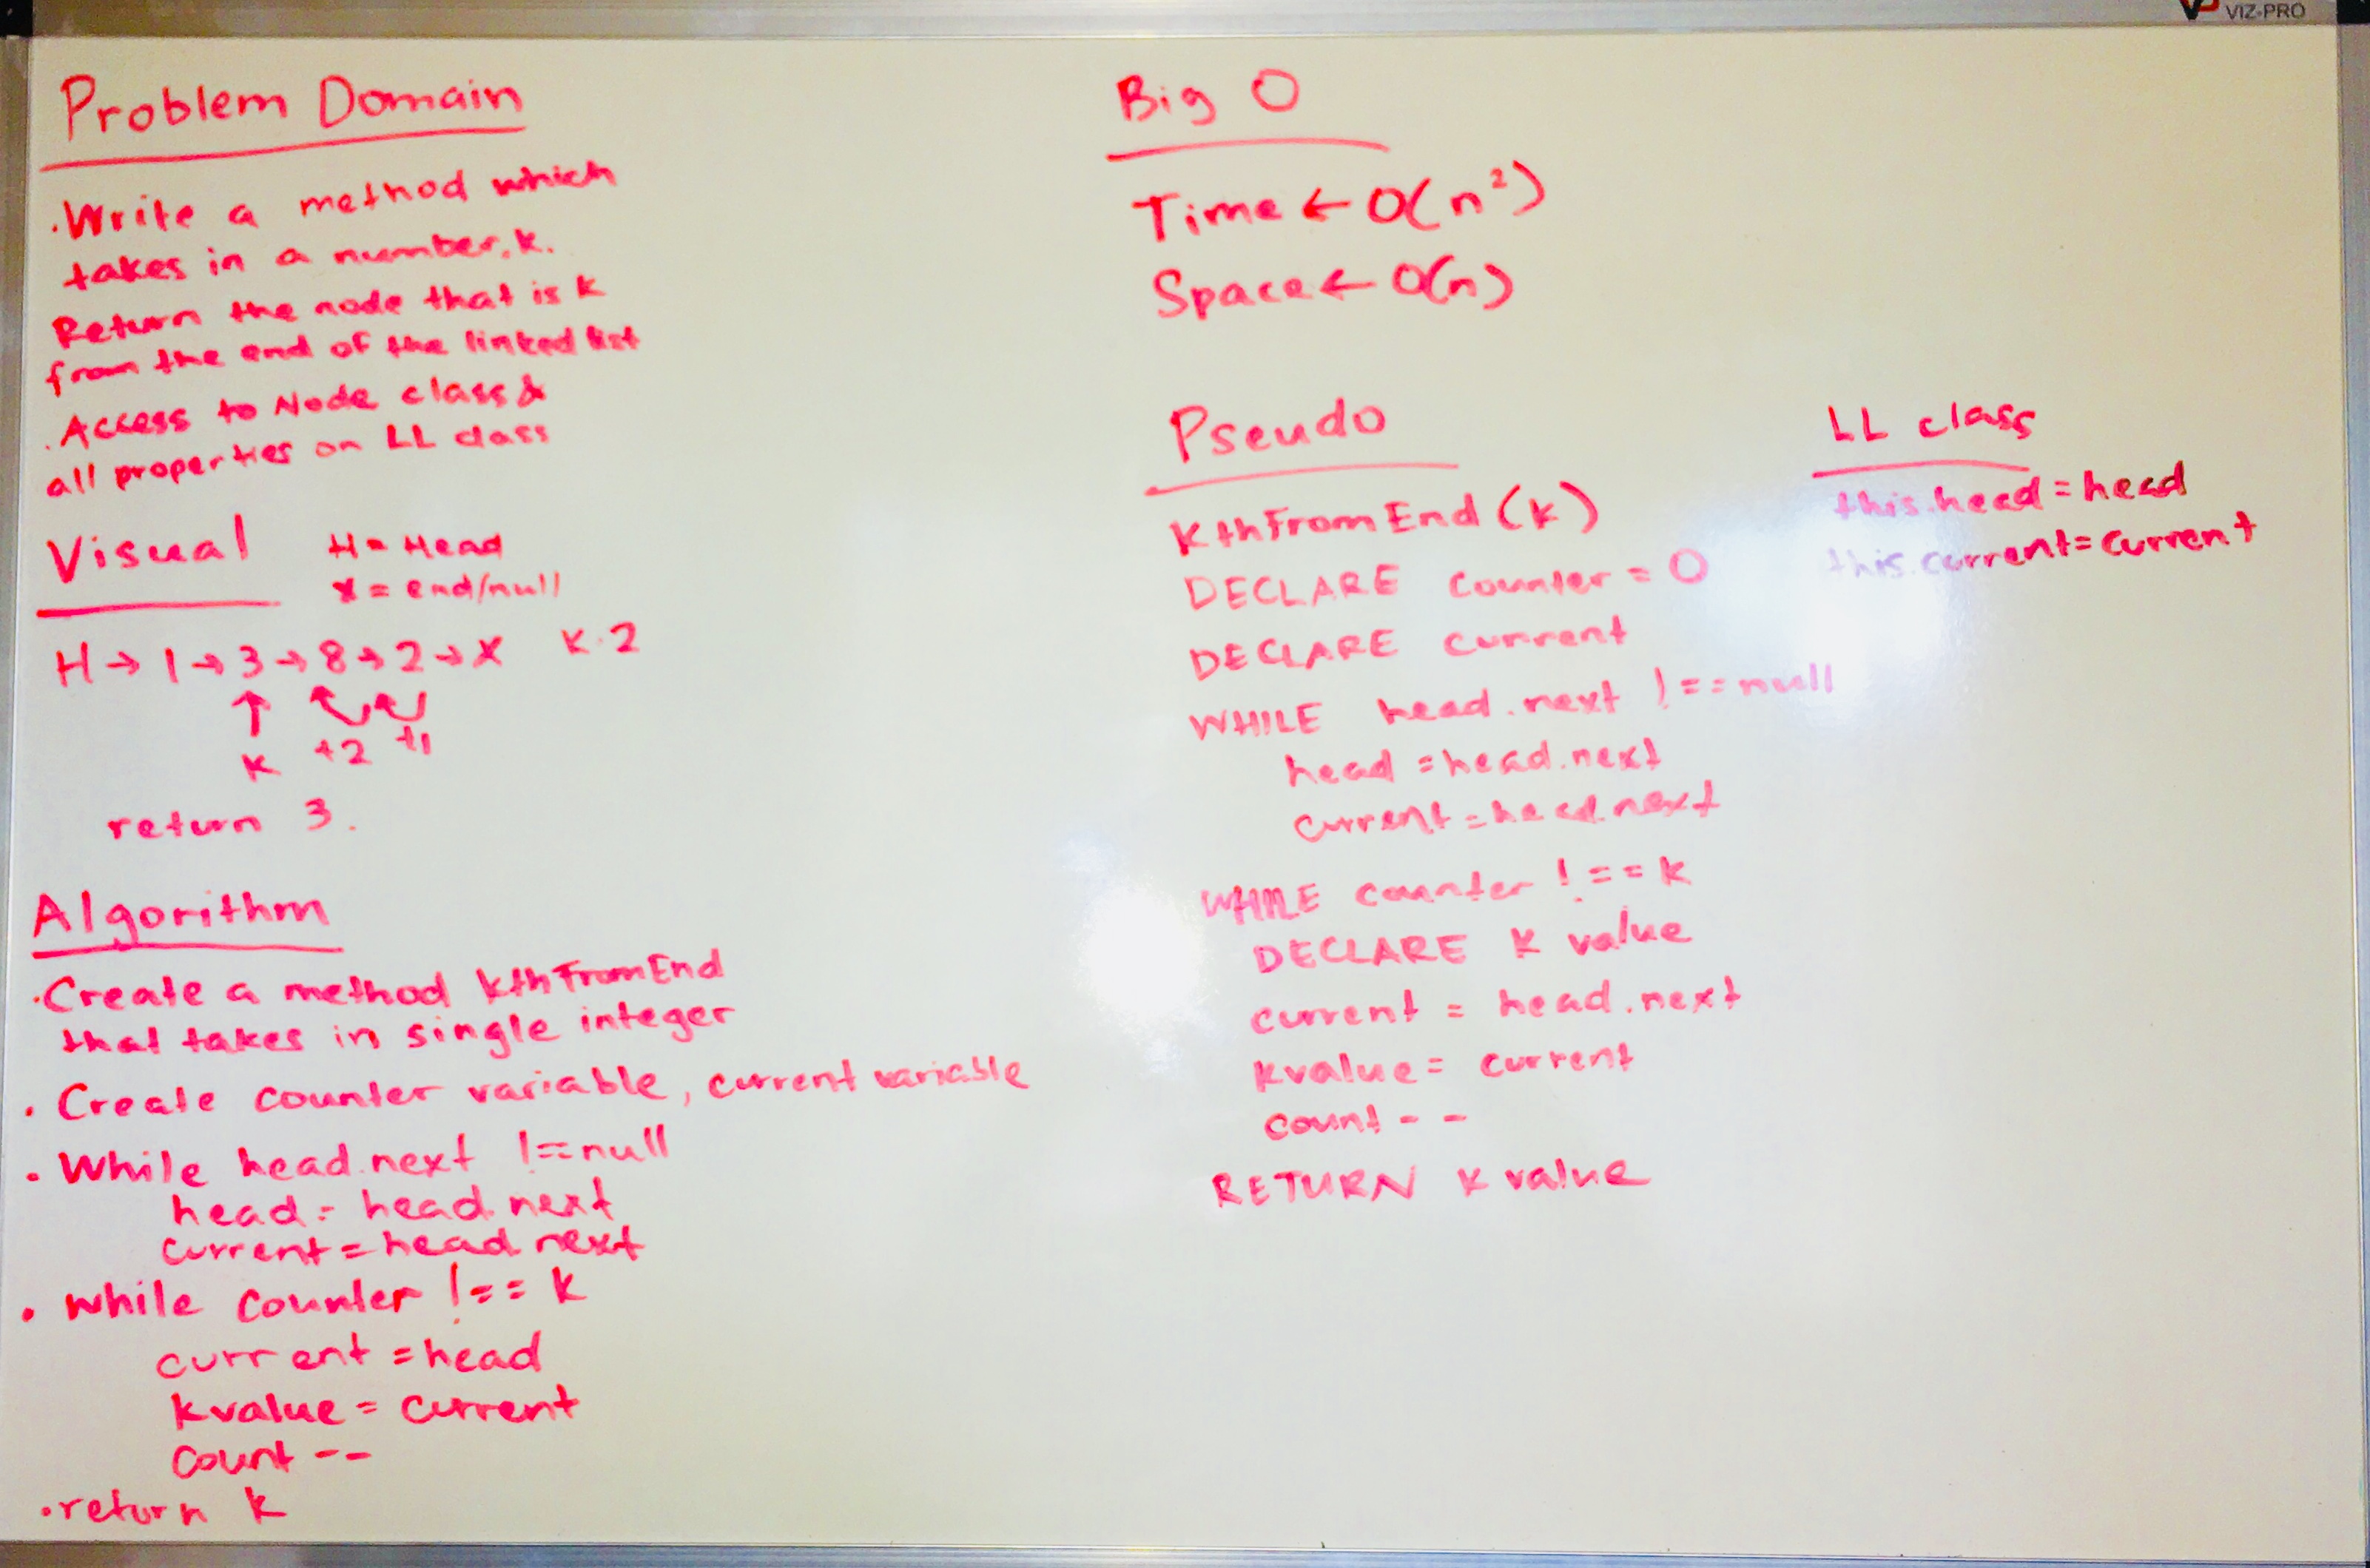 VIZ-PRO
Problem Domain
.Write a method which
takes in a number, k.
Return the node that is k
from the end of the linked list
.Access to Node class &
all properties on LL class
Visual
H = Head
X = end/null
H → 1 → 3 → 8 → 2 → X K.2
K +2 +1
return 3.
Algorithm
.Create a method kthFromEnd
that takes in single integer
. Create counter variable, current variable
. While head.next !== null
head = head.next
current = head.next
. while counter !== k
current = head
kvalue = current
count --
.return k
Big O
Time ← O(n²)
Space ← O(n)
Pseudo
KthFromEnd (k)
DECLARE counter = 0
DECLARE current
WHILE head.next !== null
head = head.next
current = head.next
WHILE counter !== k
DECLARE k value
current = head.next
kvalue = current
count - -
RETURN k value
LL class
this.head = head
this.current = current